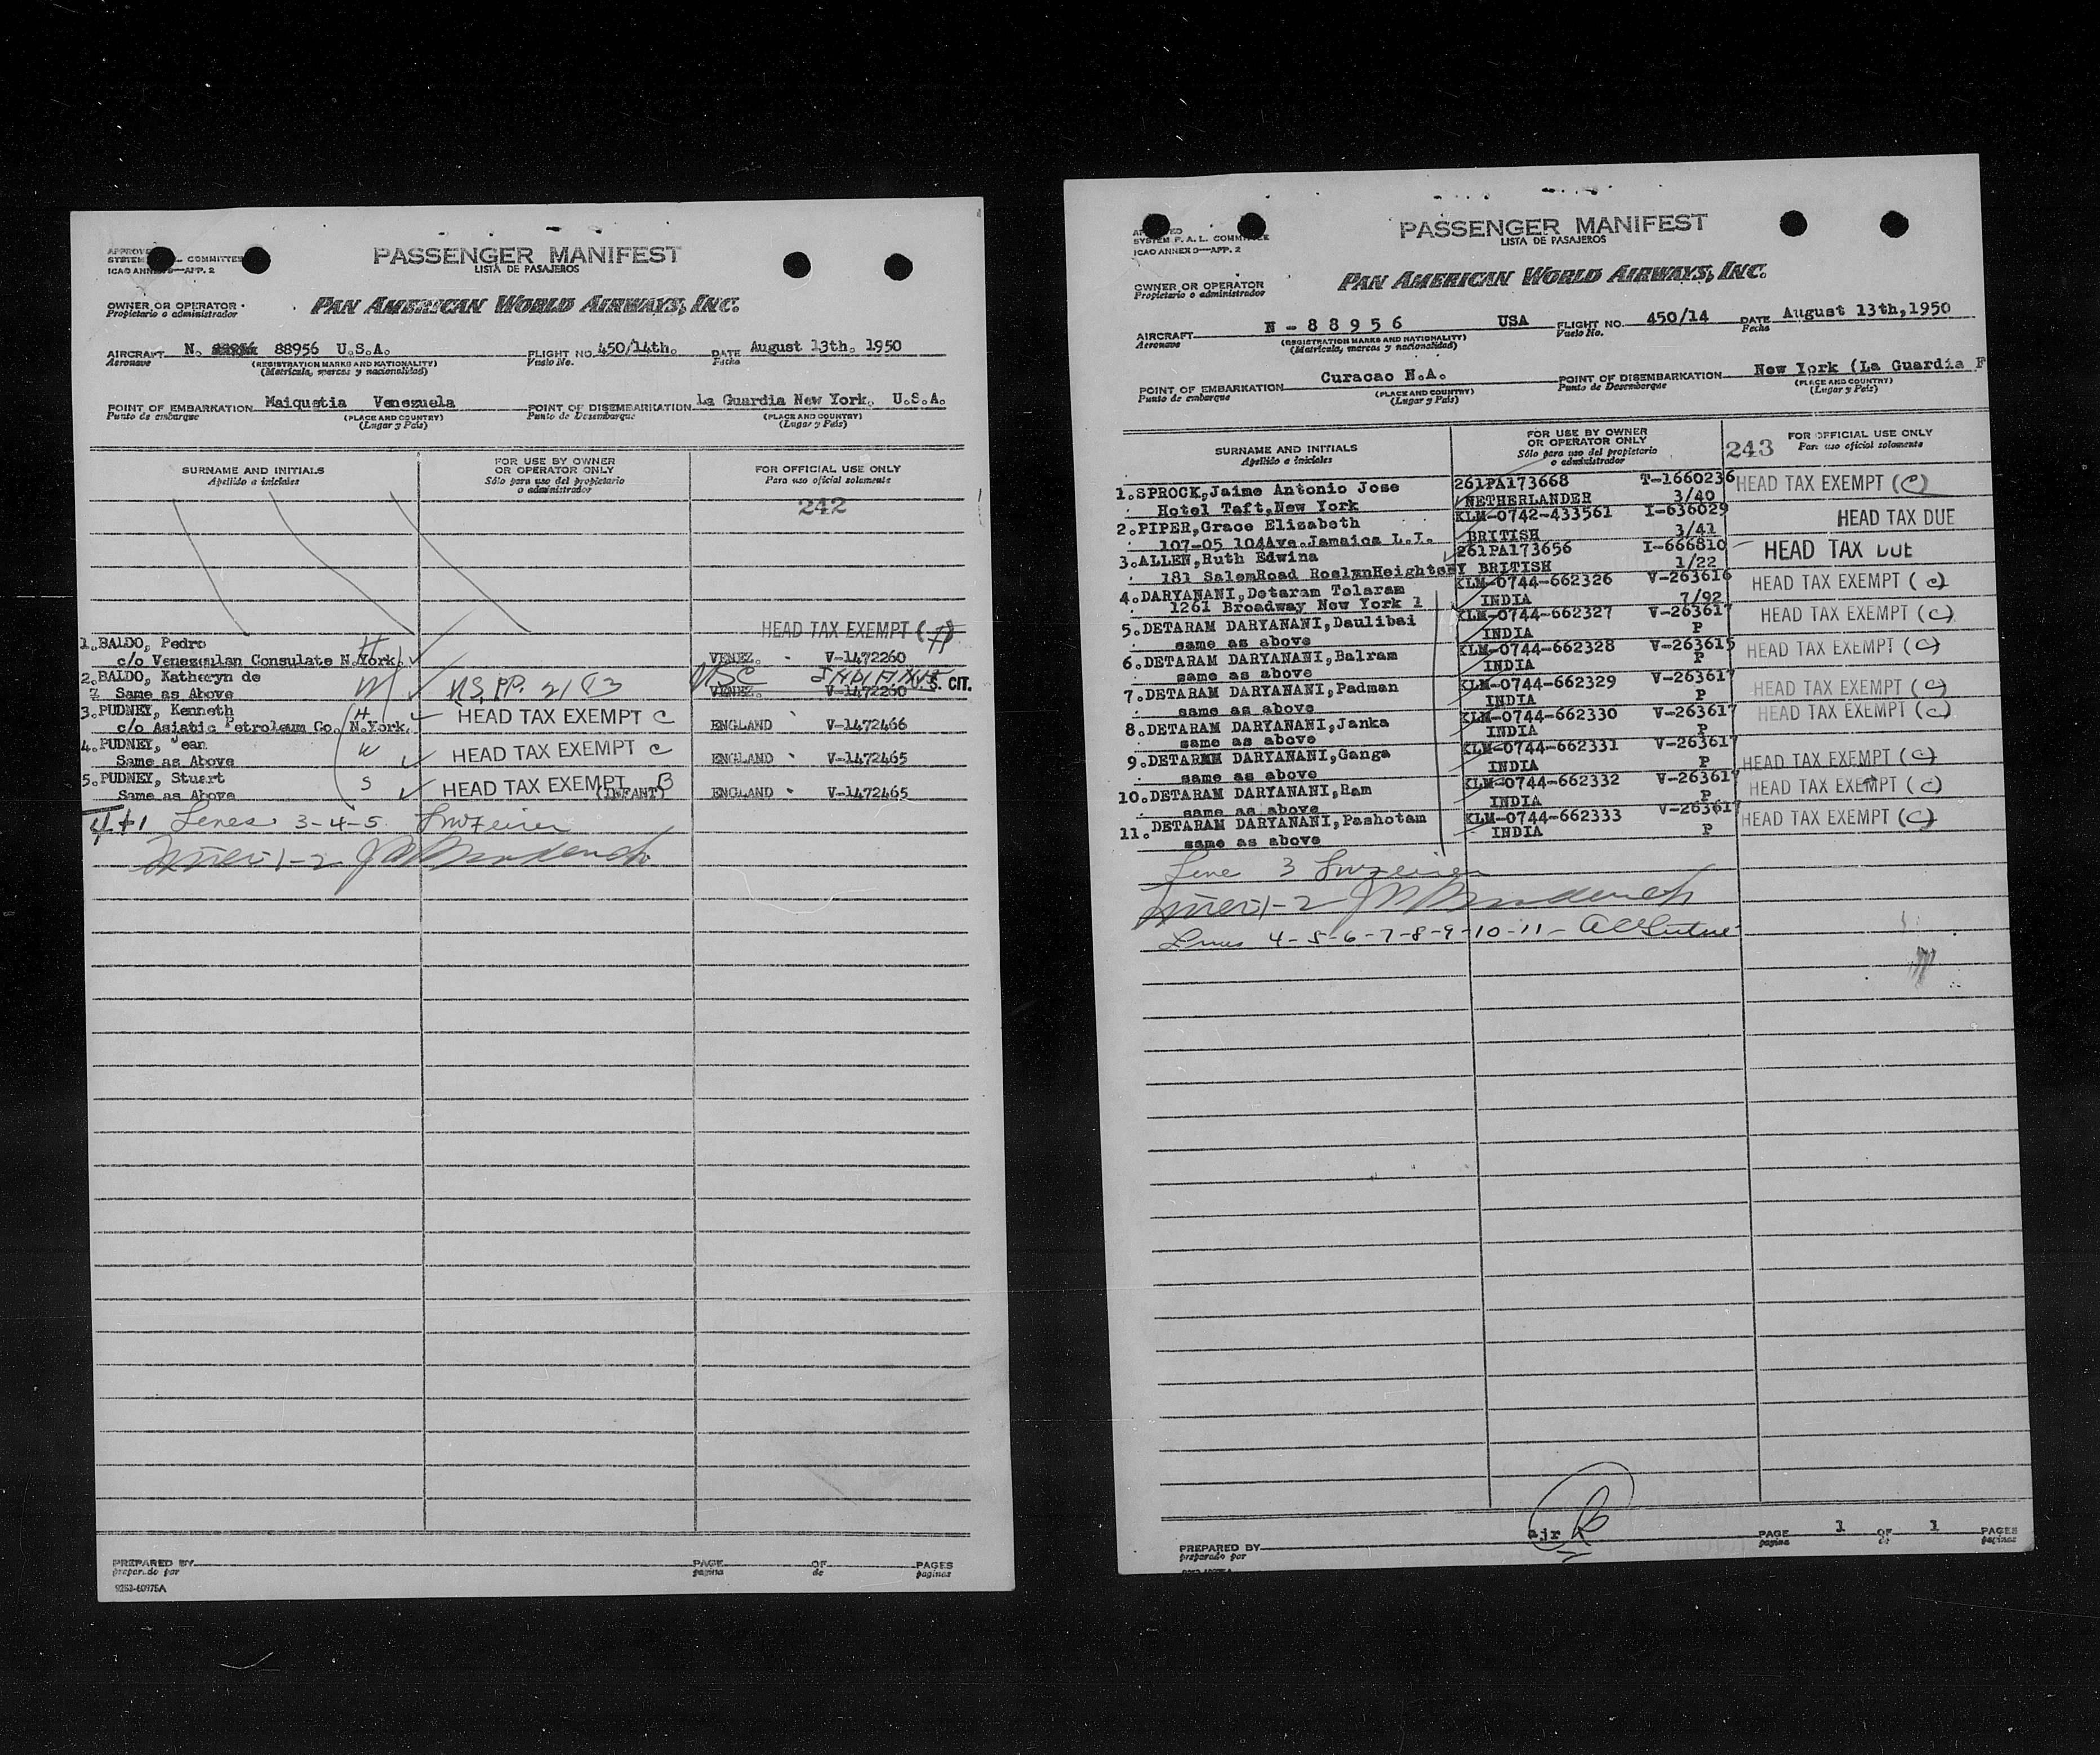 APPROVED
SYSTEM F. A. L. COMMITTEE
ICAO ANNEX 9—APP. 2
PASSENGER MANIFEST
LISTA DE PASAJEROS
OWNER OR OPERATOR
Propietario o administrador
PAN AMERICAN WORLD AIRWAYS, INC.
AIRCRAFT N. 88956 U.S.A. FLIGHT NO. 450/14th. DATE August 13th. 1950
Aeronave (REGISTRATION MARKS AND NATIONALITY) Vuelo No. Fecha
(Matrícula, marcas y nacionalidad)
POINT OF EMBARKATION Maiquetia Venezuela POINT OF DISEMBARKATION La Guardia New York. U.S.A.
Punto de embarque (PLACE AND COUNTRY) Punto de Desembarque (PLACE AND COUNTRY)
(Lugar y País) (Lugar y País)
SURNAME AND INITIALS FOR USE BY OWNER OR OPERATOR ONLY FOR OFFICIAL USE ONLY
Apellido e iniciales Sólo para uso del propietario o administrador Para uso oficial solamente
242
HEAD TAX EXEMPT (
1.BALDO, Pedro H
c/o Venezuelan Consulate N.York. VENEZ. V-1472260
2.BALDO, Katheryn de W USC
Same as Above VENEZ. V-1472260 U.S. CIT.
3.PUDNEY, Kenneth H HEAD TAX EXEMPT C
c/o Asiatic Petroleum Co. N.York. ENGLAND V-1472466
4.PUDNEY, Jean W HEAD TAX EXEMPT C
Same as Above ENGLAND V-1472465
5.PUDNEY, Stuart S HEAD TAX EXEMPT B
Same as Above (INFANT) ENGLAND V-1472465
4+1 Lines 3-4-5
1-2
PREPARED BY PAGE OF PAGES
preparado por página de páginas
9253-60975A
SYSTEM F. A. L. COMMITTEE
ICAO ANNEX 9—APP. 2
PASSENGER MANIFEST
LISTA DE PASAJEROS
OWNER OR OPERATOR
Propietario o administrador
PAN AMERICAN WORLD AIRWAYS, INC.
AIRCRAFT N - 8 8 9 5 6 USA FLIGHT NO. 450/14 DATE August 13th,1950
Aeronave (REGISTRATION MARKS AND NATIONALITY) Vuelo No. Fecha
(Matrícula, marcas y nacionalidad)
POINT OF EMBARKATION Curacao N.A. POINT OF DISEMBARKATION New York (La Guardia F
Punto de embarque (PLACE AND COUNTRY) Punto de Desembarque (PLACE AND COUNTRY)
(Lugar y País) (Lugar y País)
SURNAME AND INITIALS FOR USE BY OWNER OR OPERATOR ONLY FOR OFFICIAL USE ONLY
Apellido e iniciales Sólo para uso del propietario o administrador Para uso oficial solamente
243
1.SPROCK,Jaime Antonio Jose 261PA173668 T-1660236 HEAD TAX EXEMPT (C)
Hotel Taft,New York NETHERLANDER 3/40
2.PIPER,Grace Elizabeth KLM-0742-433561 I-636029 HEAD TAX DUE
107-05 104Ave.Jamaica L.I. BRITISH 3/41
3.ALLEN,Ruth Edwina 261PA173656 I-666810 HEAD TAX DUE
181 SalemRoad RoslynHeights BRITISH 1/22
4.DARYANANI,Detaram Tolaram KLM-0744-662326 V-263616 HEAD TAX EXEMPT (C)
1261 Broadway New York 1 INDIA 7/92
5.DETARAM DARYANANI,Daulibai KLM-0744-662327 V-263617 HEAD TAX EXEMPT (C)
same as above INDIA P
6.DETARAM DARYANANI,Balram KLM-0744-662328 V-263615 HEAD TAX EXEMPT (C)
same as above INDIA P
7.DETARAM DARYANANI,Padman KLM-0744-662329 V-263617 HEAD TAX EXEMPT (C)
same as above INDIA P
8.DETARAM DARYANANI,Janka KLM-0744-662330 V-263617 HEAD TAX EXEMPT (C)
same as above INDIA P
9.DETARAM DARYANANI,Ganga KLM-0744-662331 V-263617 HEAD TAX EXEMPT (C)
same as above INDIA P
10.DETARAM DARYANANI,Ram KLM-0744-662332 V-263617 HEAD TAX EXEMPT (C)
same as above INDIA P
11.DETARAM DARYANANI,Pashotam KLM-0744-662333 V-263617 HEAD TAX EXEMPT (C)
same as above INDIA P
Line 3
1-2
Lines 4-5-6-7-8-9-10-11-
ajr
PREPARED BY PAGE 1 OF 1 PAGES
preparado por página de páginas